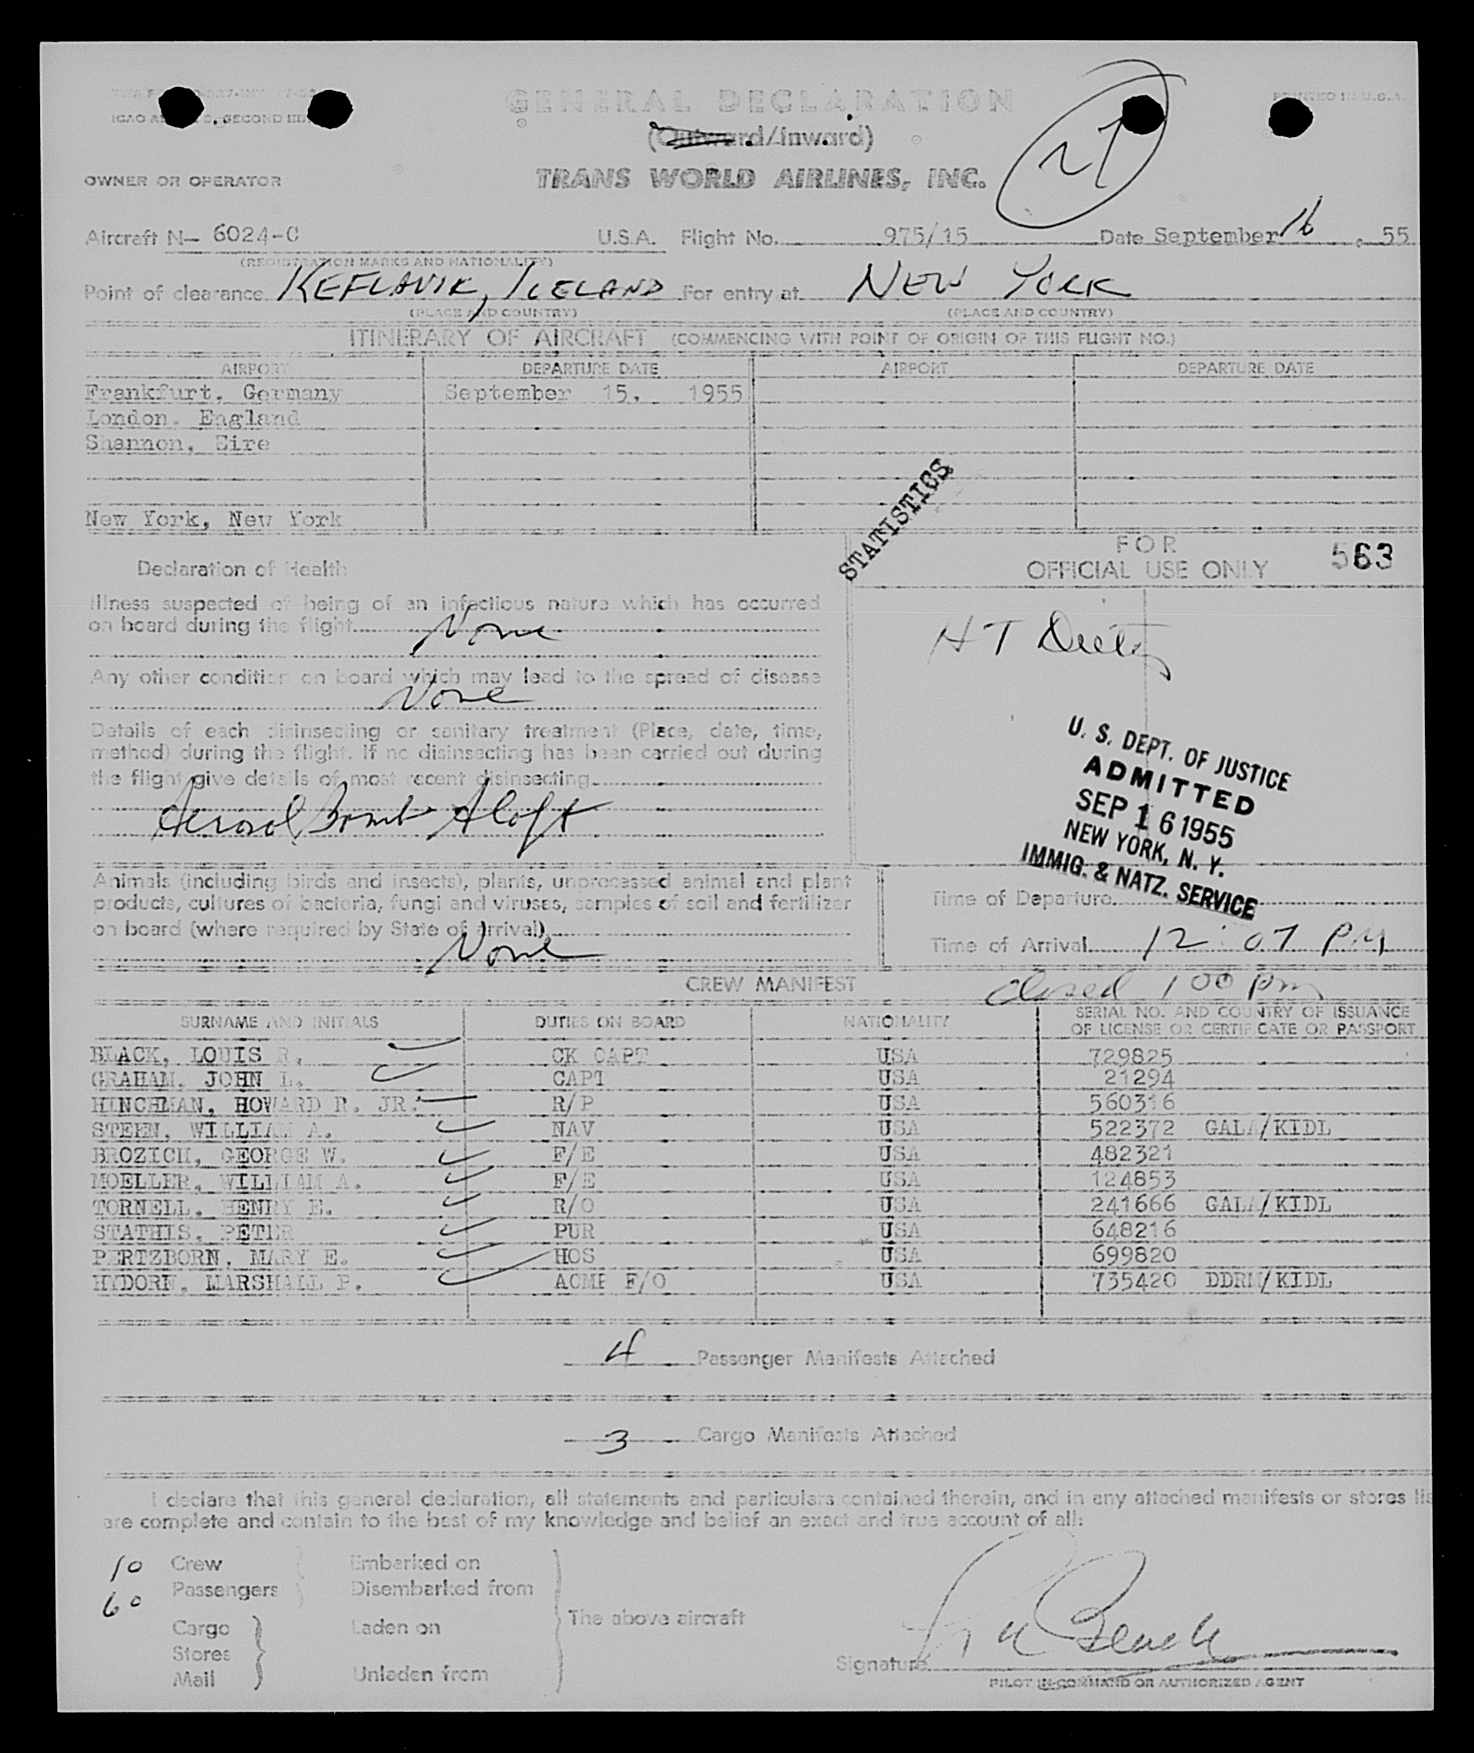 GENERAL DECLARATION
(Outward/Inward)
TRANS WORLD AIRLINES, INC.
21
PRINTED IN U.S.A.
OWNER OR OPERATOR
Aircraft N- 6024-C U.S.A. Flight No. 975/15 Date September 16, 55
(REGISTRATION MARKS AND NATIONALITY)
Point of clearance KEFLAVIK, ICELAND For entry at NEW YORK
(PLACE AND COUNTRY) (PLACE AND COUNTRY)
ITINERARY OF AIRCRAFT (COMMENCING WITH POINT OF ORIGIN OF THIS FLIGHT NO.)
AIRPORT DEPARTURE DATE AIRPORT DEPARTURE DATE
Frankfurt, Germany September 15, 1955
London, England
Shannon, Eire
New York, New York
STATISTICS
Declaration of Health
Illness suspected of being of an infectious nature which has occurred
on board during the flight None
Any other condition on board which may lead to the spread of disease
None
Details of each disinsecting or sanitary treatment (Place, date, time,
method) during the flight. If no disinsecting has been carried out during
the flight give details of most recent disinsecting
Aerosol Bomb Aloft
Animals (including birds and insects), plants, unprocessed animal and plant
products, cultures of bacteria, fungi and viruses, samples of soil and fertilizer
on board (where required by State of arrival)
None
FOR
OFFICIAL USE ONLY 563
H T
U. S. DEPT. OF JUSTICE
ADMITTED
SEP 16 1955
NEW YORK, N. Y.
IMMIG. & NATZ. SERVICE
Time of Departure
Time of Arrival 12:07 PM
closed 100 pm
CREW MANIFEST
SURNAME AND INITIALS DUTIES ON BOARD NATIONALITY SERIAL NO. AND COUNTRY OF ISSUANCE
OF LICENSE OR CERTIFICATE OR PASSPORT
BLACK, LOUIS R. CK CAPT USA 729825
GRAHAM, JOHN L. CAPT USA 21294
HINCHMAN, HOWARD R. JR. R/P USA 560316
STEEN, WILLIAM A. NAV USA 522372 GALA/KIDL
BROZICH, GEORGE W. F/E USA 482321
MOELLER, WILLIAM A. F/E USA 124853
TORNELL, HENRY E. R/O USA 241666 GALA/KIDL
STATHIS, PETER PUR USA 648216
PERTZBORN, MARY E. HOS USA 699820
HYDORN, MARSHALL P. ACMF F/O USA 735420 DDRM/KIDL
4 Passenger Manifests Attached
3 Cargo Manifests Attached
I declare that this general declaration, all statements and particulars contained therein, and in any attached manifests or stores lis
are complete and contain to the best of my knowledge and belief an exact and true account of all:
10 Crew Embarked on
60 Passengers Disembarked from
The above aircraft
Cargo Laden on
Stores
Mail Unladen from
Signature
PILOT IN COMMAND OR AUTHORIZED AGENT